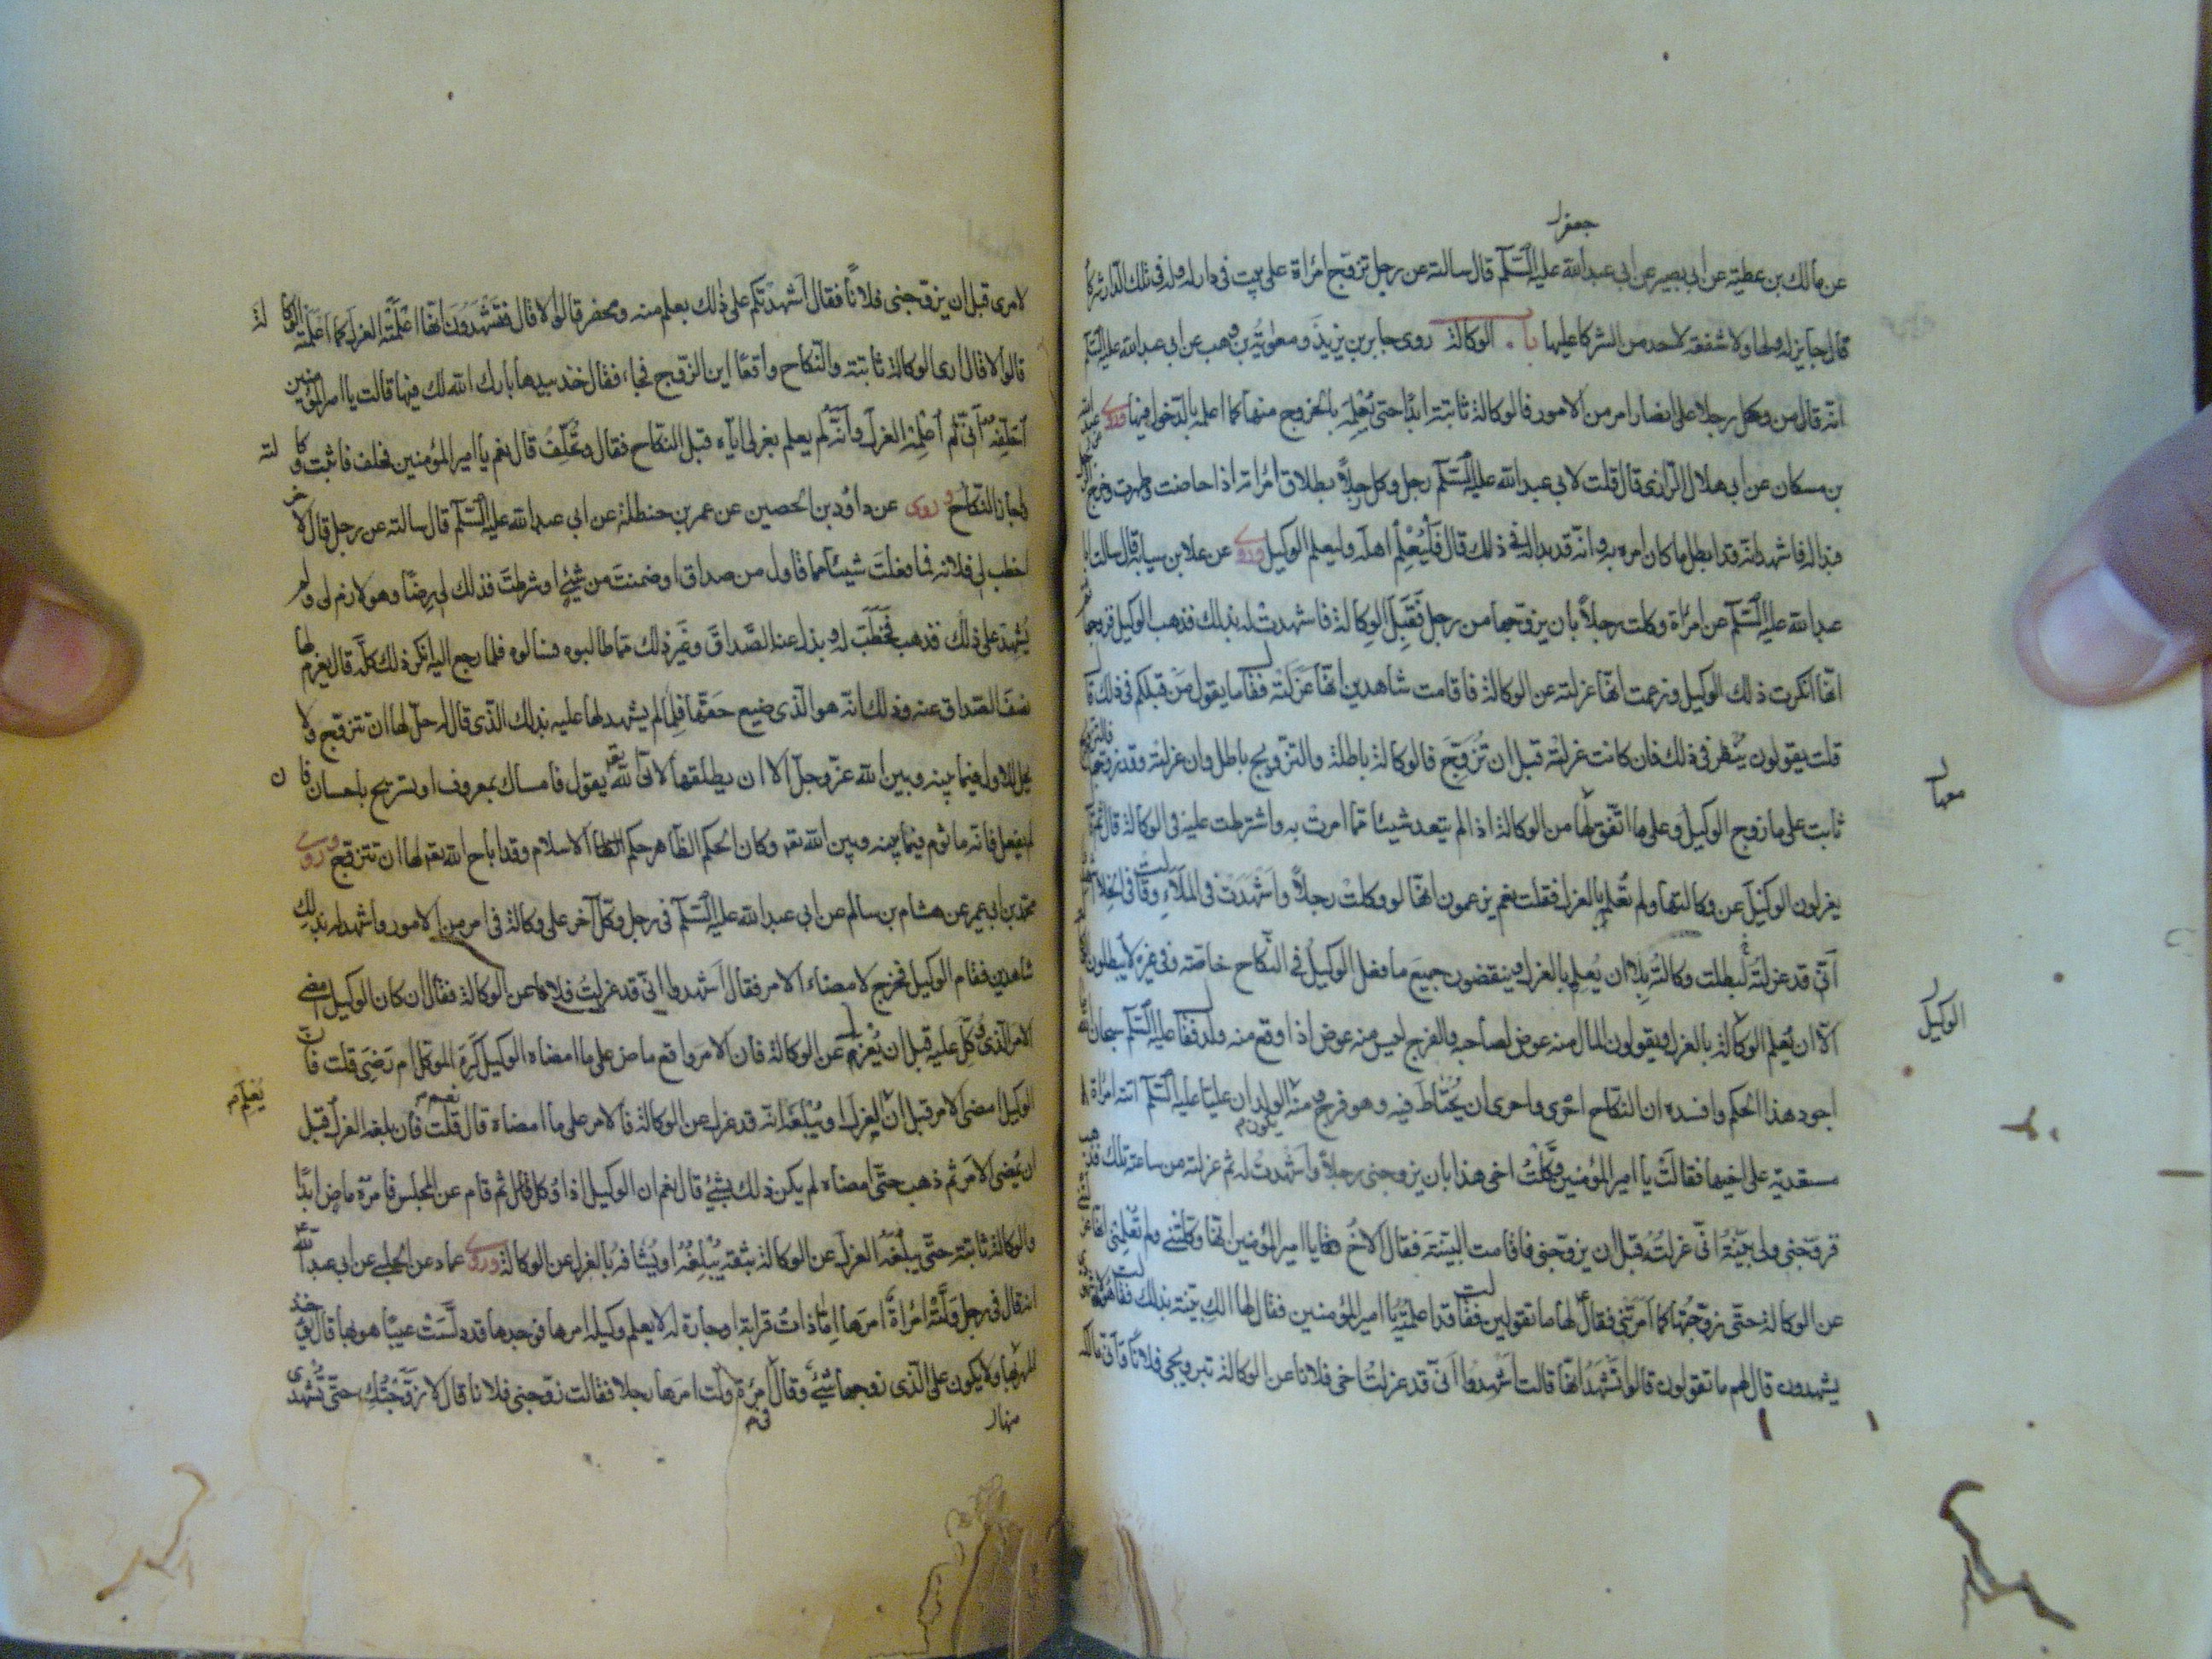 جعفر
عن مالك بن عطية عن ابى بصير عن ابى عبدالله عليه السّلم قال سالته عن رجل تزوج امراة على بيت فى دار له وله فى تلك الدار شركا
قال جايز له ولها ولا شفعة لاحد من الشركا عليها باب الوكالة روى جابر بن يزيد و معوية بن وهب عن ابى عبدالله عليه السّلم
انّه قال من وكل رجلا على امضار امر من الامور فالوكالة ثابتة ابدًا حتى يُعْلِمَه بالخروج منها كما اعلمه بالدخول فيها وروى عبدالله
بن مسكان عن ابى هلال الرازى قال قلت لابى عبدالله عليه السّلم رجل وكل رجلاً بطلاق امراته اذا حاضت وطهرت وخرج الرجل
فبدا له فاشهد انّه قد ابطل ما كان امره به وانّه قد بدا له فى ذلك قال فَلْيُعْلِم اهله وليعلم الوكيل وروى عن علا بن سيابة قال سالت ابا
عبدالله عليه السّلم عن امراة وكلت رجلاً بان يزوّجها من رجل فَقَبِلَ الوكالة فاشهدت له بذلك فذهب الوكيل فزوجها
انّها انكرت ذلك الوكيل وزعمت انّها عزلته عن الوكالة فاقامت شاهدين انّها عَزَلَتْه فقال ما يقول مَن قبلكم فى ذلك قال
قلت يقولون يُنْظر فى ذلك فان كانت عزلتْه قبل ان تُزَوّجَ فالوكالة باطلة والتزّويج باطل وان عزلته وقد زوّجها فالتزويج
ثابت على ما زوج الوكيل وعلى ما اتّفق معها من الوكالة اذا لم يتعد شيئا ممّا امرت به واشترطت عليه فى الوكالة قال ثم
يعزلون الوكيل عن وكالتها ولم تُعْلِم بالعزل فقلت نعم يزعمون انّها لو وكلت رجلاً واَشْهَدَت فى الملاءِ وقالت فى الخلاء
اَنّى قد عزلتُه لبطلت وكالتُه بلا ان يُعلِم بالعزل وينقضون جميع ما فعل الوكيل فى النّكاح خاصّة وفى غيره لا يبطلون
الّا ان يُعلِم الوكالة بالعزل ويقولون المال منه عوض لصاحبه والفرج ليس منه عوض اذا وقع منه ولد فقال عليه السّلم سبحان الله
اجور هذا الحكم وافسده ان النكاح احرى واحرى ان يُحْتاطَ فيه وهو فرج ومنه يكون الولد ان عليّا عليه السّلم اتته امراة
مستعدية على اخيها فقالَتْ يا امير المؤمنين وكَّلتُ اخى هذا بان يزوجنى رجلاً وأشهدتُ له ثم عزلته من ساعته تلك فذهب
فزوّجنى ولى بيّنة انّى عزلتُه قبل ان يزوّجنى فاقامت البيّنة فقال الاخُ يا امير المؤمنين انّها وكّلتنى ولم تُعْلِمنى انّها عزلتنى
عن الوكالة حتّى زوّجتها كما اَمَرَتْنى فقال لها ما تقولين فقالت قد اعلمتُه يا امير المؤمنين فقال لها الكِ بيّنة بذلك فقالت هؤلاء
يشهدون قال لهم ما تقولون قالوا نشهد انّها قالت اشهدوا انّى قد عزلتُ اخى فلانا عن الوكالة بتزويجى فلانًا وانّى مالكة
معها
الوكيل
لامرى قبل ان يزوّجنى فلاناً فقال اَشهدَتْكم على ذلك بعلم منه ومحضر قالوا لا قال فَتَشْهَدُونَ انّها اعْلَمَتْه العزل كما اَعْلَمَتْه الوكالة
قالوا لا قال ارى الوكالة ثابتة والنّكاح واقعًا اين الزّوج فجاء فقال خذ بيدها بارك الله لك فيها قالت يا امير المؤمنين
اَحْلِفْه اَنّى لم اُعْلِمْه العزل وانّه لم يعلم بعزلى ايّاه قبل النكاح فقال وتَحْلِفُ قال نعم يا امير المؤمنين فحلف فاثبت وكالته
واجاز النّكاح وروى عن داوُد بن الحصين عن عمر بن حنظلة عن ابى عبدالله عليه السّلم قال سالته عن رجل قال لاخر
اخطب لى فلانة فما فعلتَ شيئا مما قاول من صداق او ضمنتَ من شيئٍ او شرطتَ فذلك لى رضًا وهو لازم لى ولم
يُشْهِد على ذلك فذهب فَخَطَبَ له وبذل عنه الصَّداقَ وغير ذلك ممّا طالبوه وسالوه فلما رجع اليه انكر ذلك كلّه قال يغرم لها
نصفَ الصّداق عنه وذلك انّه هو الّذى ضيع حقّها فلمّا لم يشهد لها عليه بذلك الّذى قال له حلّ لها ان تتزوّج ولا
يحل للاول فيما بينه وبين الله عزّ وجلّ الا ان يطلقها لانّ الله يقول فامساك بمعروف او تسريح باحسان فان
لم يفعل فانّه ماثوم فيما بينه وبين الله تعه وكان الحكم الظّاهر حكم الاسلام وقد اباح الله تعه لها ان تتزوّج وروى
محمّد بن ابى عمير عن هشام بن سالم عن ابى عبدالله عليه السّلم فى رجل وكّل آخر على وكالة فى امر من الامور واشهد له بذلك
شاهدين فقام الوكيل فخرج لامضاء الامر فقال اشهدوا انّى قد عزلتُ فلانا عن الوكالة فقال ان كان الوكيل امضى
الامر الّذى وكّل عليه قبل ان يُعْزل عن الوكالة فان الامر واقع ماض على ما امضاه الوكيل كَرِهَ الموكّل ام رَضِىَ قلت فان
الوكيل امضى الامر قبل ان يعلم العزل او يُبْلَغَه انّه قد عزل عن الوكالة فالامر على ما امضاه قال نعم قلت فان بلغه العزل قبل
ان يُمْضى الامر ثم ذهب حتّى امضاه لم يكن ذلك بشئٍ قال نعم ان الوكيل اذا وُكل ثم قام عن المجلس فامره ماضٍ ابدًا
والوكالة ثابتة حتّى يبلُغَهُ العزل عن الوكالة بثقة يُبْلِغُهُ او يُشافه بالعزل عن الوكالة وروى حماد عن الحلبى عن ابى عبدالله
انه قال فى رجل وَلَّتْهُ امراةٌ امرَها اِمّا ذاتُ قرابة او جارة له لا يعلم وكيله امرها فوجدها قد دلَّسَتْ عيبًا هو بها قال يؤخذ
المهر منها ولا يكون على الّذى زوجها شئ وقال فى امرءة ولّت امرَها رجلا فقالت زوّجنى فلانا قال لا زوّجْتُكِ حتّى تُشْهدى
يُعْلِم
منها